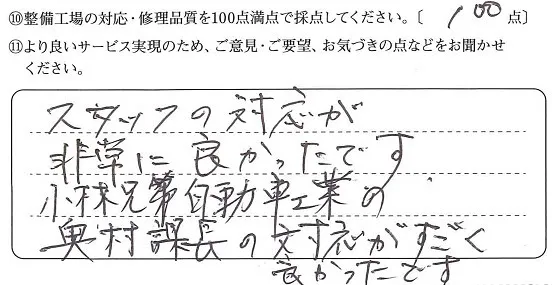 ⑩整備工場の対応・修理品質を100点満点で採点してください。〔 100 点〕
⑪より良いサービス実現のため、ご意見・ご要望、お気づきの点などをお聞かせ
ください。
スタッフの対応が
非常に良かったです
小林兄弟自動車工業の
奥村課長の対応がすごく
良かったです